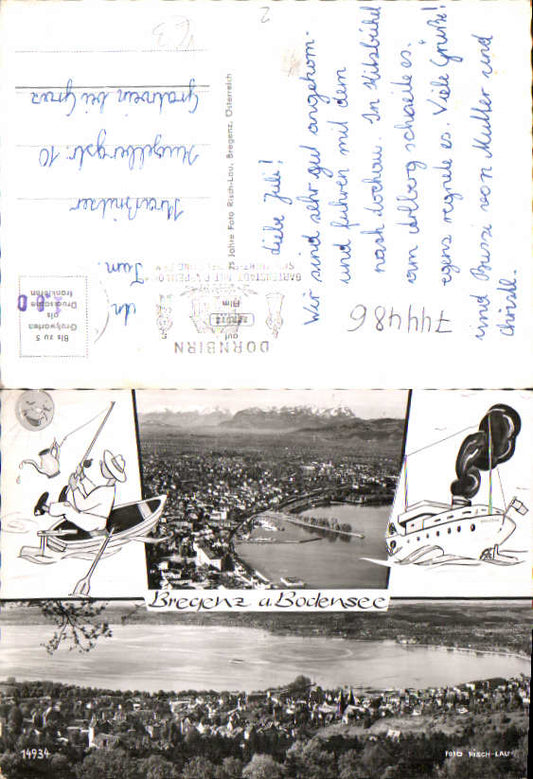 Liebe Juli!
Wir sind sehr gut angekom-
men und fuhren mit dem
nach Lochau. In Kitzbühel
am Arlberg schneite es.
regnete es. Viele Grüße!
und Bussi von Mutter und
Christl.
744486
DORNBIRN
75 Jahre Foto Risch-Lau, Bregenz, Österreich
Bis zu 5
Grußworten
als
Drucksache
frankieren
An
Fam.
Hügelbergstr. 10
Gratwein bei Graz
2
Bregenz a. Bodensee
14934
FOTO RISCH-LAU